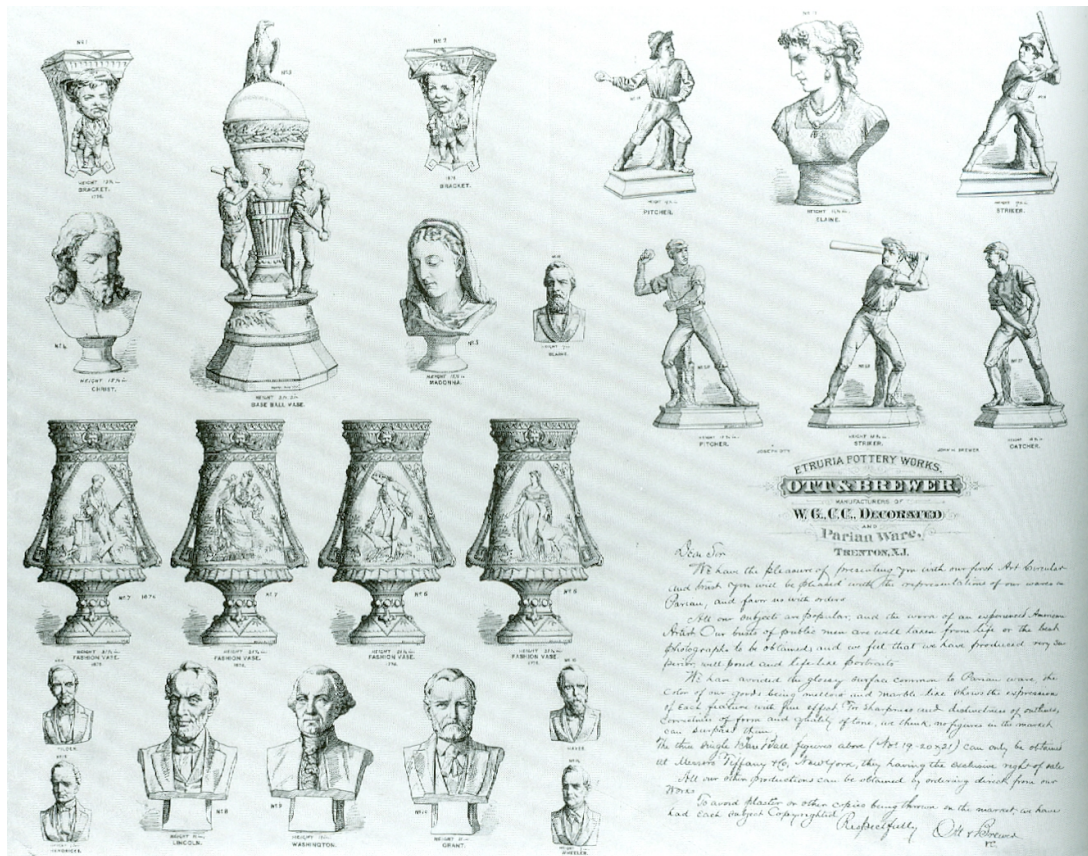 No. 1
No. 2
No. 3
BRACKET.
BRACKET.
PITCHER.
ELAINE.
STRIKER.
No. 4
No. 5
CHRIST.
MADONNA.
BLAINE.
BASE BALL VASE.
PITCHER.
STRIKER.
CATCHER.
JOSEPH OTT
JOHN H. BREWER
ETRURIA POTTERY WORKS.
OTT & BREWER
MANUFACTURERS OF
W. G., C. C., DECORATED
AND
Parian Ware,
TRENTON, N.J.
No. 7
No. 7
No. 6
No. 6
FASHION VASE.
FASHION VASE.
FASHION VASE.
FASHION VASE.
TILDEN.
HAYES.
No. 8
No. 9
HENDRICKS.
LINCOLN.
WASHINGTON.
GRANT.
WHEELER.
Dear Sir
We have the pleasure of presenting you with our first Art Circular
and trust you will be pleased with the representations of our wares in
Parian, and favor us with orders
All our subjects are popular, and the work of an experienced American
Artist. Our busts of public men are well taken from life or the best
photographs to be obtained, and we feel that we have produced very
superior, well posed and life-like portraits
We have avoided the glossy surface common to Parian ware, the
color of our goods being mellow and marble like shows the expression
of each feature with fine effect. For sharpness and distinctness of outlines,
correctness of form and quality of tone, we think, no figures in the market
can surpass them.
The three single Base Ball figures above (Nos 19-20 & 21) can only be obtained
at Messrs Tiffany & Co, New York, they having the exclusive right of sale
All our other productions can be obtained by ordering direct from our
Works
To avoid plaster or other copies being thrown on the market, we have
had each subject Copyrighted
Respectfully Ott & Brewer